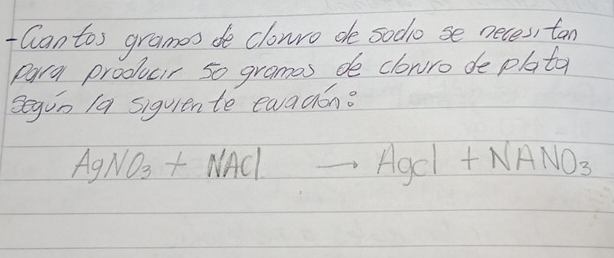 -Cuantos gramos de cloruro de sodio se necesitan
para producir 50 gramos de cloruro de plata
según la siguiente ecuación:
AgNO₃ + NACl → Agcl + NANO₃